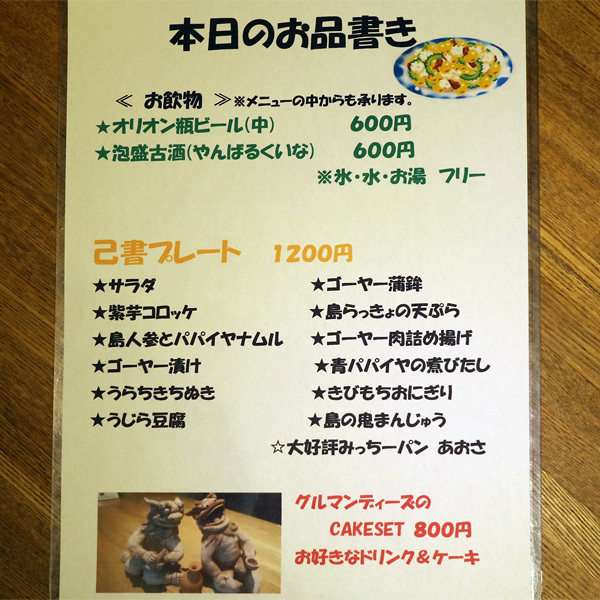 本日のお品書き
≪ お飲物 ≫※メニューの中からも承ります。
★オリオン瓶ビール(中) 600円
★泡盛古酒(やんばるくいな) 600円
※氷・水・お湯 フリー
己書プレート 1200円
★サラダ ★ゴーヤー蒲鉾
★紫芋コロッケ ★島らっきょの天ぷら
★島人参とパパイヤナムル ★ゴーヤー肉詰め揚げ
★ゴーヤー漬け ★青パパイヤの煮びたし
★うらちきちぬき ★きびもちおにぎり
★うじら豆腐 ★島の鬼まんじゅう
☆大好評みっちーパン あおさ
グルマンディーズの
CAKESET 800円
お好きなドリンク＆ケーキ